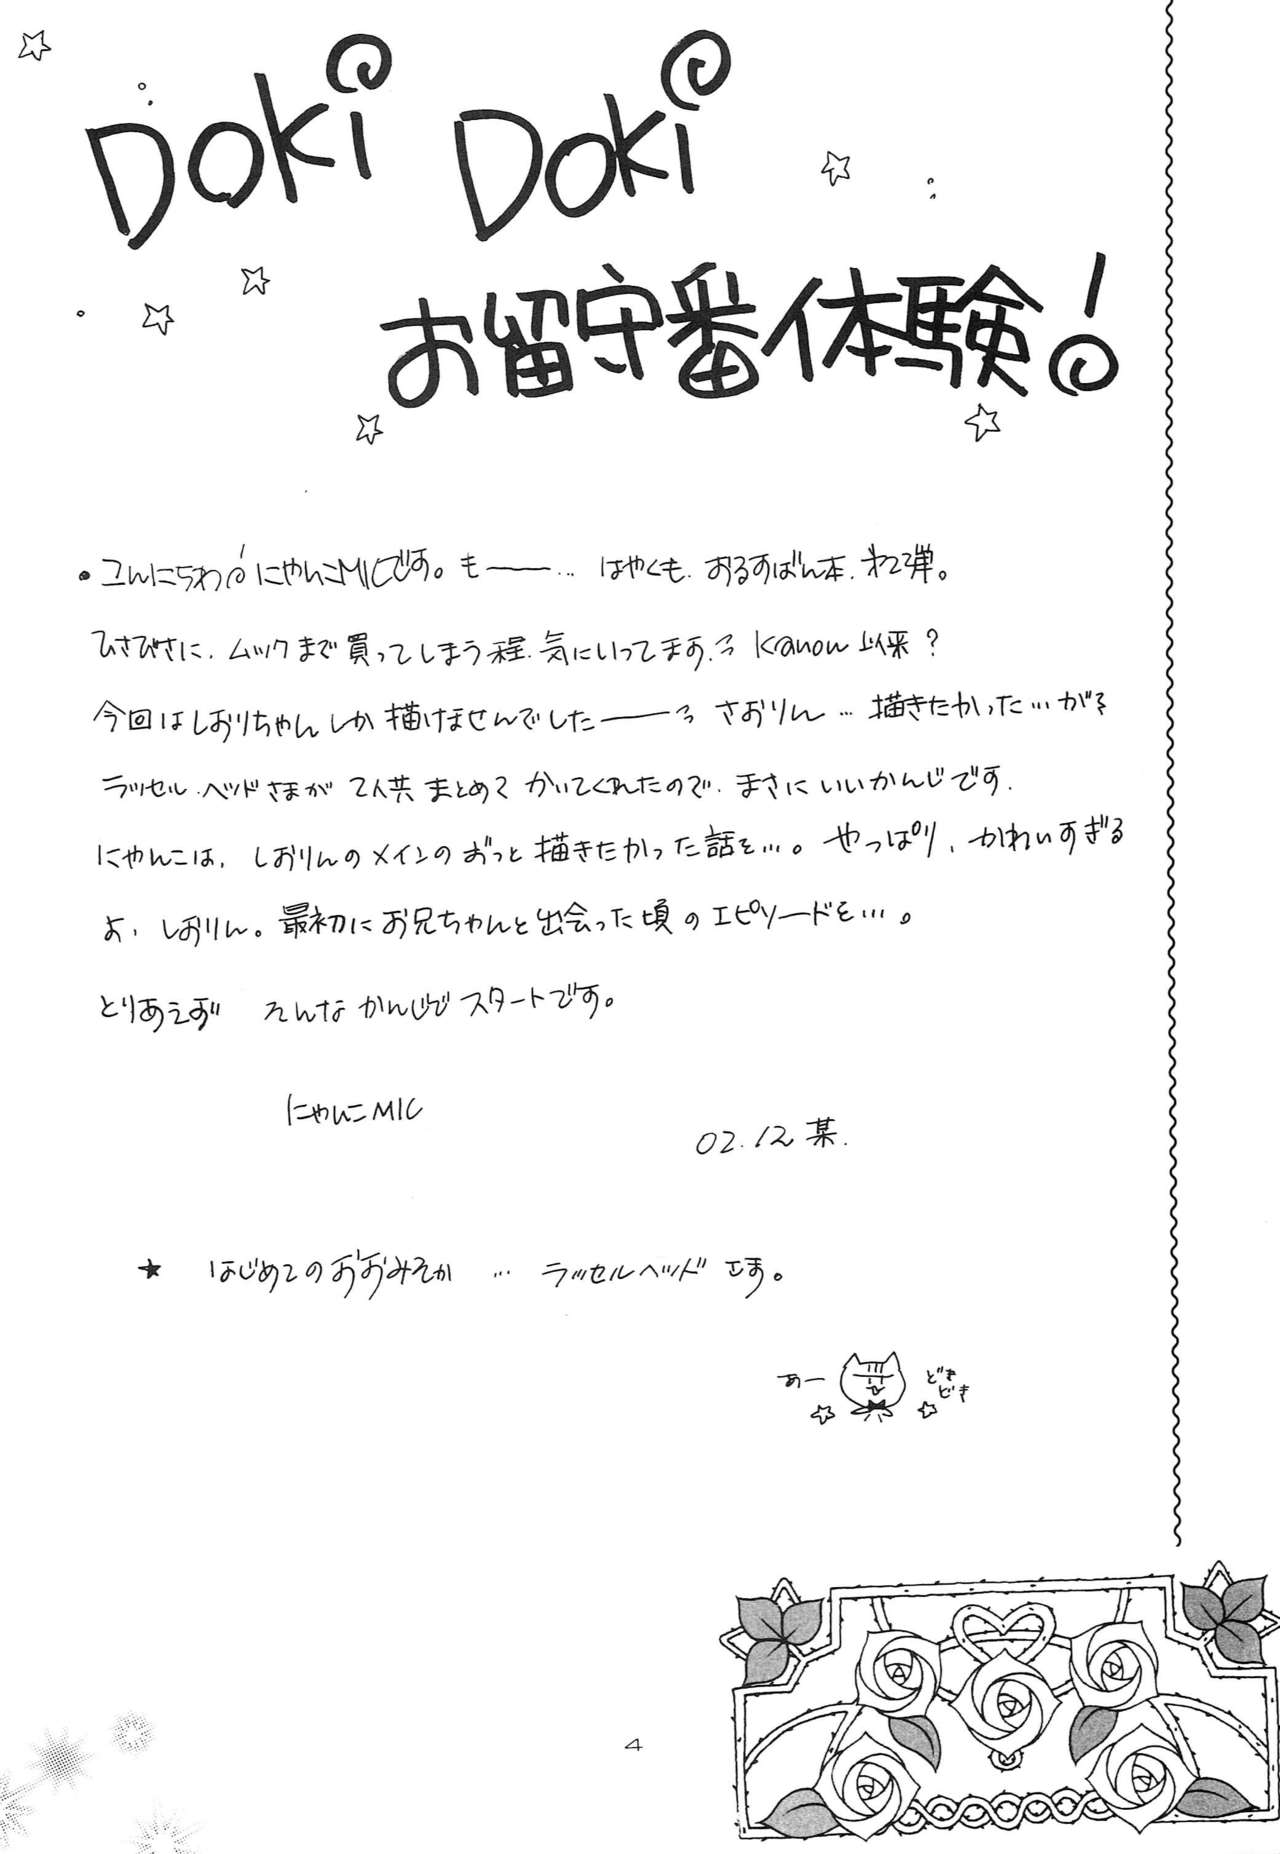 DOKi DOKi
お留守番体験!
・こんにちわ!にゃんこMICです。も――… はやくも、おるすばん本、第2弾。
ひさびさに、ムックまで買ってしまう程、気にいってます。 Kanon以来?
今回はしおりちゃんしか描けませんでした―― さおりん…描きたかった…がそ
ラッセル・ヘッドさまが2人共まとめてかいてくれたので、まさにいいかんじです。
にゃんこは、しおりんのメインのずっと描きたかった話を…。やっぱり、かわいすぎる
よ、しおりん。最初にお兄ちゃんと出会った頃のエピソードを…。
とりあえず そんなかんじでスタートです。
にゃんこMIC
02.12某.
★ はじめてのおおみそか … ラッセルヘッドさま。
あー
どき
どき
4